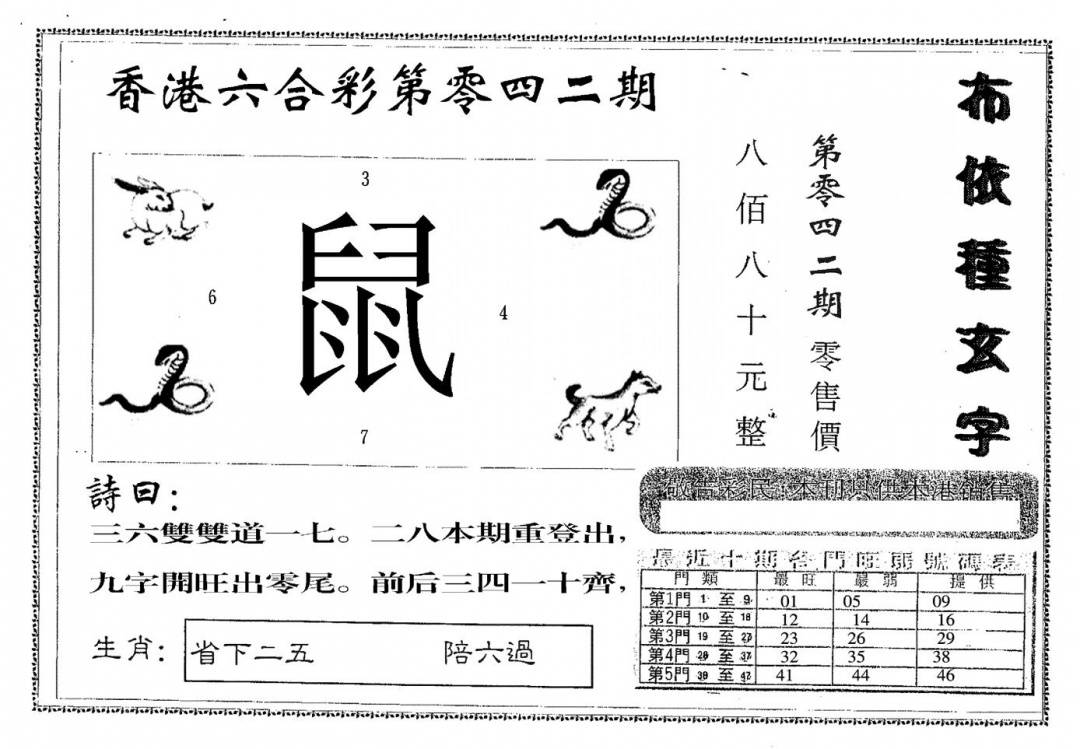 香港六合彩第零四二期
布依種玄字
第零四二期零售價
八佰八十元整
3
鼠
6
4
7
詩曰：
三六雙雙道一七。二八本期重登出，
九字開旺出零尾。前后三四一十齊，
生肖： 省下二五 陪六過
敬告彩民：本刊只供本港銷售
最近十期各門旺弱號碼表
門類 最旺 最弱 提供
第1門 1 至 9 01 05 09
第2門 10 至 18 12 14 16
第3門 19 至 27 23 26 29
第4門 28 至 37 32 35 38
第5門 38 至 47 41 44 46